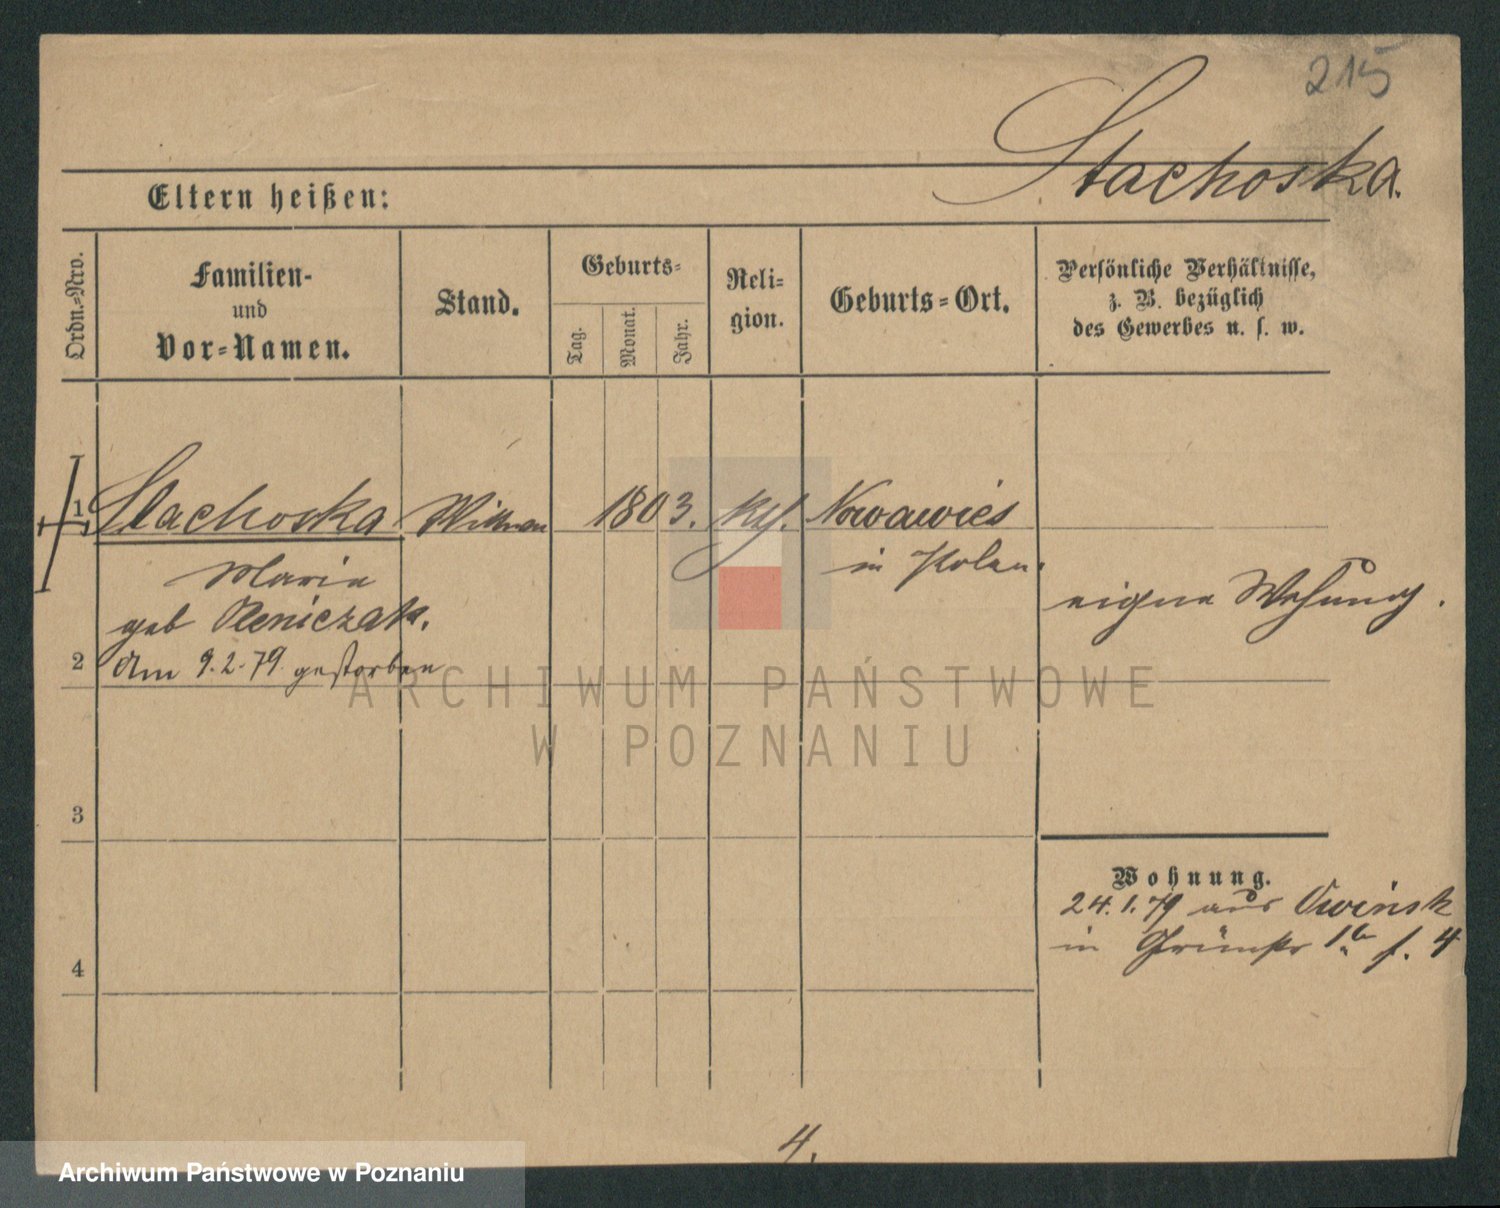 215
Stachoska.
Eltern heißen:
Ordn.-Nro.
Familien-
und
Vor-Namen.
Stand.
Geburts-
Tag.
Monat.
Jahr.
Reli-
gion.
Geburts-Ort.
Persönliche Verhältnisse,
z. B. bezüglich
des Gewerbes u. s. w.
1 Stachoska Wittwe 1803. kth. Nowawies
in Polen.
Maria
geb
eigne Wohnung.
2 Am 9.2.79 gestorben
ARCHIWUM PAŃSTWOWE
W POZNANIU
3
Wohnung.
24.1.79 aus Owinsk
in
4
4.
Archiwum Państwowe w Poznaniu